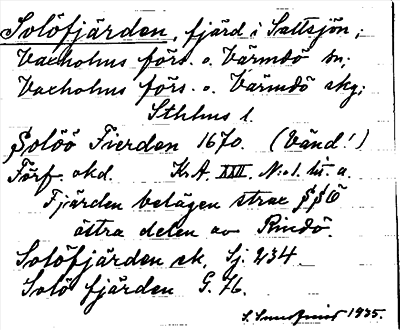 Solöfjärden, fjärd i Saltsjön;
Vaxholms förs. o. Värmdö sn;
Vaxholms förs. o. Värmdö skg;
Sthlms l.
Solöö Fierden 1670. (Vänd!)
Förf. okd. K.A. XXII. N:o 1. lit. a.
Fjärden belägen strax SSO
östra delen av Rindö.
Solöfjärden sk. Sj. 234.
Solö fjärden G. 76.
S. 1935.